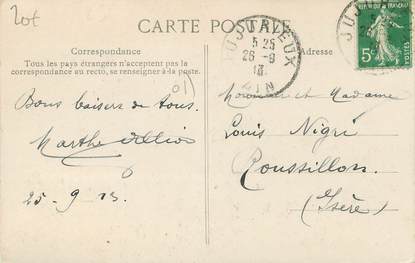 CARTE POSTALE
Correspondance
Tous les pays étrangers n'acceptent pas la
correspondance au recto, se renseigner à la poste.
Adresse
5 25
26 -9
13
AIN
5c
POSTES
(01)
Bons baisers de tous.
Marthe
25-9-13.
Monsieur et Madame
Louis Nigri
Roussillon.
(Isère)